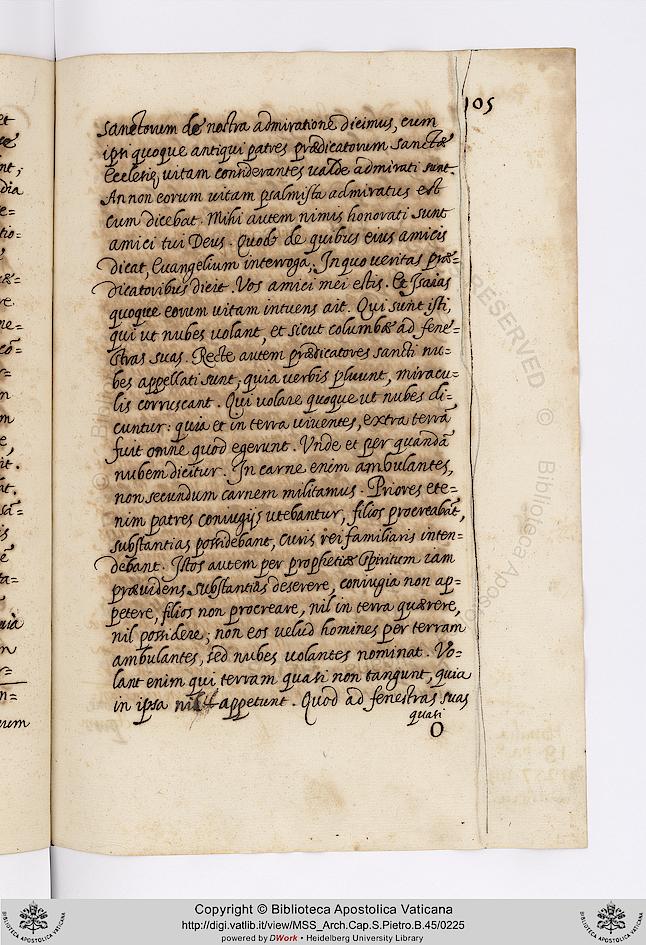 105
sanctorum de nostra admiratione dicimus, cum
ipsi quoque antiqui patres prædicatorum sanctæ
Ecclesię vitam considerantes ualde admirati sunt.
An non eorum uitam psalmista admiratus est
cum dicebat. Mihi autem nimis honorati sunt
amici tui Deus. Quod de quibus eius amicis
dicat, Euangelium interroga; In quo veritas præ=
dicatoribus dicit. Vos amici mei estis. Et Isaias
quoque eorum uitam intuens ait. Qui sunt isti,
qui ut nubes uolant, et sicut columbæ ad fene=
stras suas. Recte autem prædicatores sancti nu=
bes appellati sunt; quia uerbis pluunt, miracu=
lis corruscant. Qui uolare quoque ut nubes di=
cuntur: quia et in terra uiuentes, extra terrã
fuit omne quod egerunt. Vnde et per quandã
nubem dicitur. In carne enim ambulantes,
non secundum carnem militamus. Priores ete=
nim patres coniugijs utebantur, filios procreabãt,
substantias possidebant, curis rei familiaris inten=
debant. Istos autem per prophetiæ spiritum iam
præuidens substantias deserere, coniugia non ap=
petere, filios non procreare, nil in terra quærere,
nil possidere; non eos uelud homines per terram
ambulantes, sed nubes uolantes nominat. Vo=
lant enim qui terram quasi non tangunt, quia
in ipsa nil appetunt. Quod ad fenestras suas
quasi
O
Copyright © Biblioteca Apostolica Vaticana
http://digi.vatlib.it/view/MSS_Arch.Cap.S.Pietro.B.45/0225
powered by DWork • Heidelberg University Library